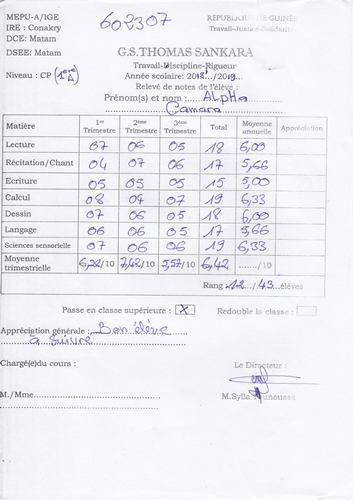 MEPU-A/IGE
IRE : Conakry
DCE: Matam
DSEE: Matam
602307
RÉPUBLIQUE DE GUINÉE
Travail-Justice-Solidarité
G.S.THOMAS SANKARA
Travail-Discipline-Rigueur
Niveau : CP (1ère A)
Année scolaire: 2018/2019
Relevé de notes de l'élève :
Prénom(s) et nom : ALPHA
Camara
Matière 1er Trimestre 2ème Trimestre 3ème Trimestre Total Moyenne annuelle Appréciation
Lecture 07 06 05 18 6,00
Récitation/Chant 04 07 06 17 5,66
Ecriture 05 05 05 15 5,00
Calcul 08 04 07 19 6,33
Dessin 07 06 05 18 6,00
Langage 06 06 05 17 5,66
Sciences sensorielle 07 06 06 19 6,33
Moyenne trimestrielle 6,28/10 7,42/10 5,57/10 6,42 ......../10
Rang 12 / 43 élèves
Passe en classe supérieure : X Redouble la classe :
Appréciation générale : Bon élève
à suivre
Chargé(e)du cours : Le Directeur :
M./Mme. M.Sylla Younoussa